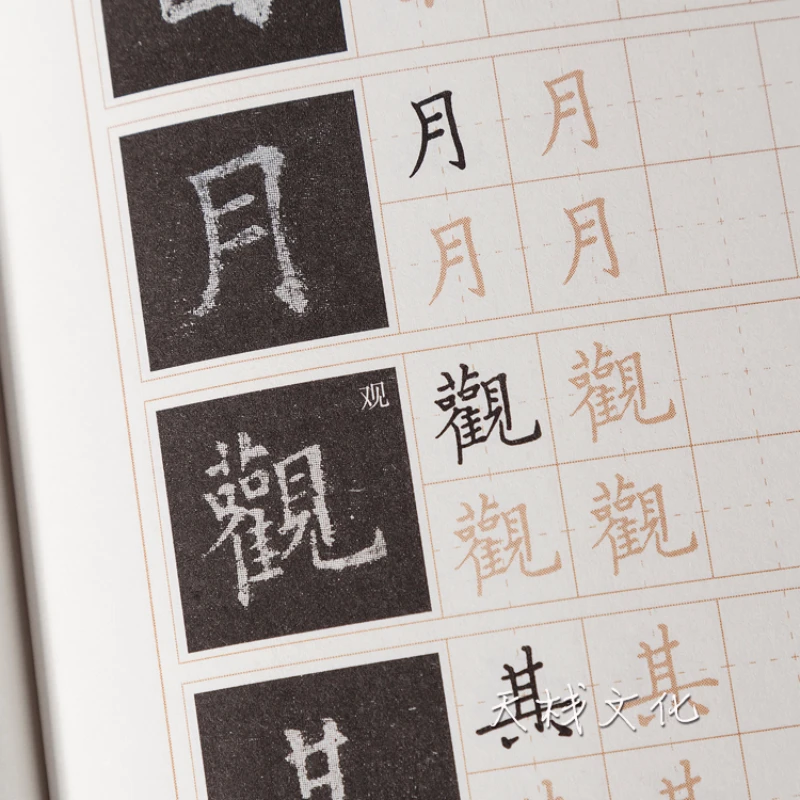 月 月 月
月 月
观
觀 觀 觀
觀 觀
其 其
文化